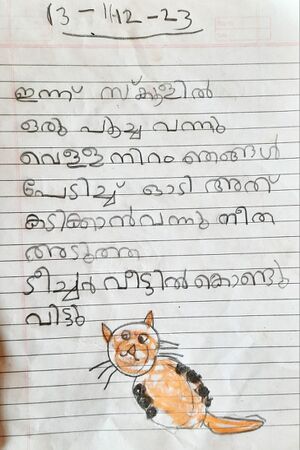 13-12-23
ഇന്ന് സ്കൂളിൽ
ഒരു പൂച്ച വന്നു
വെള്ളനിറം ഞങ്ങൾ
പേടിച്ച് ഓടി അത്
കടിക്കാൻവന്നു നീത
അടുത്ത
ടീച്ചർ വീട്ടിൽകൊണ്ടു
വിട്ടു